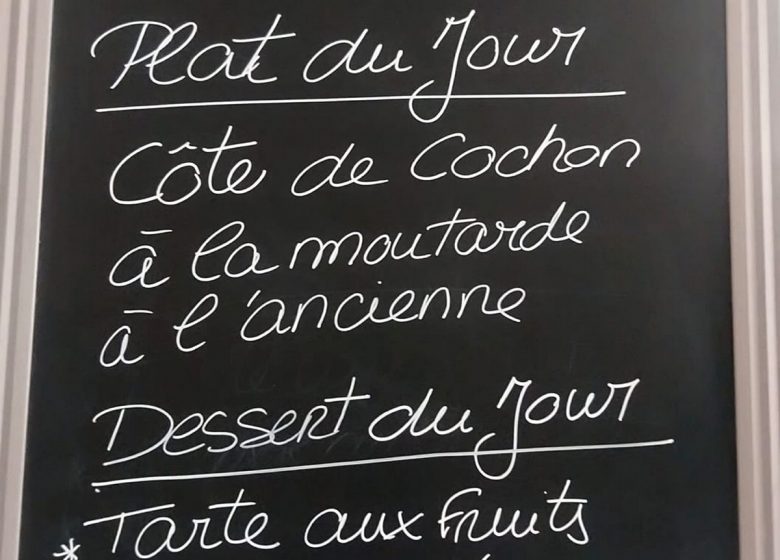 Plat du Jour
Côte de Cochon
à la moutarde
à l'ancienne
Dessert du Jour
* Tarte aux Fruits